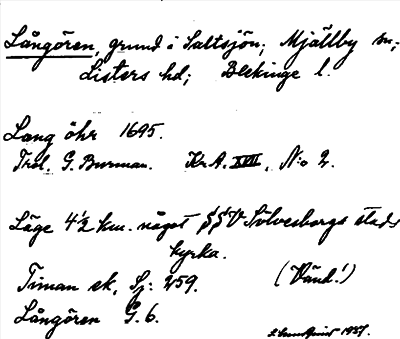 Långören, grund i Saltsjön; Mjällby sn;
Listers hd; Blekinge l.
Lang öhr 1695.
G. Burman. Kr. A. XVIII, N:o 2.
Läge 4 1/2 km. något SSV Sölvesborgs stads
kyrka.
Timan ek. Sj: 259. (Vänd!)
Långören G. 6.
1937.